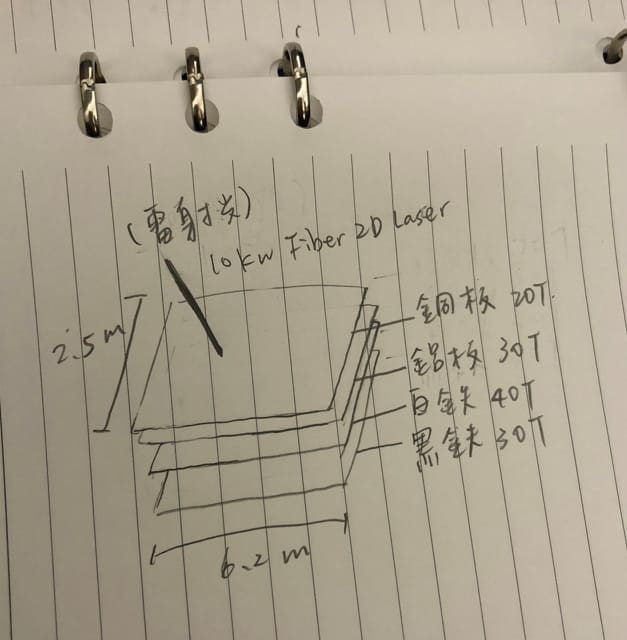 (雷射光)
10kW Fiber 2D Laser
2.5m
銅板 20T
鋁板 30T
白鉄 40T
黑鉄 30T
6.2m